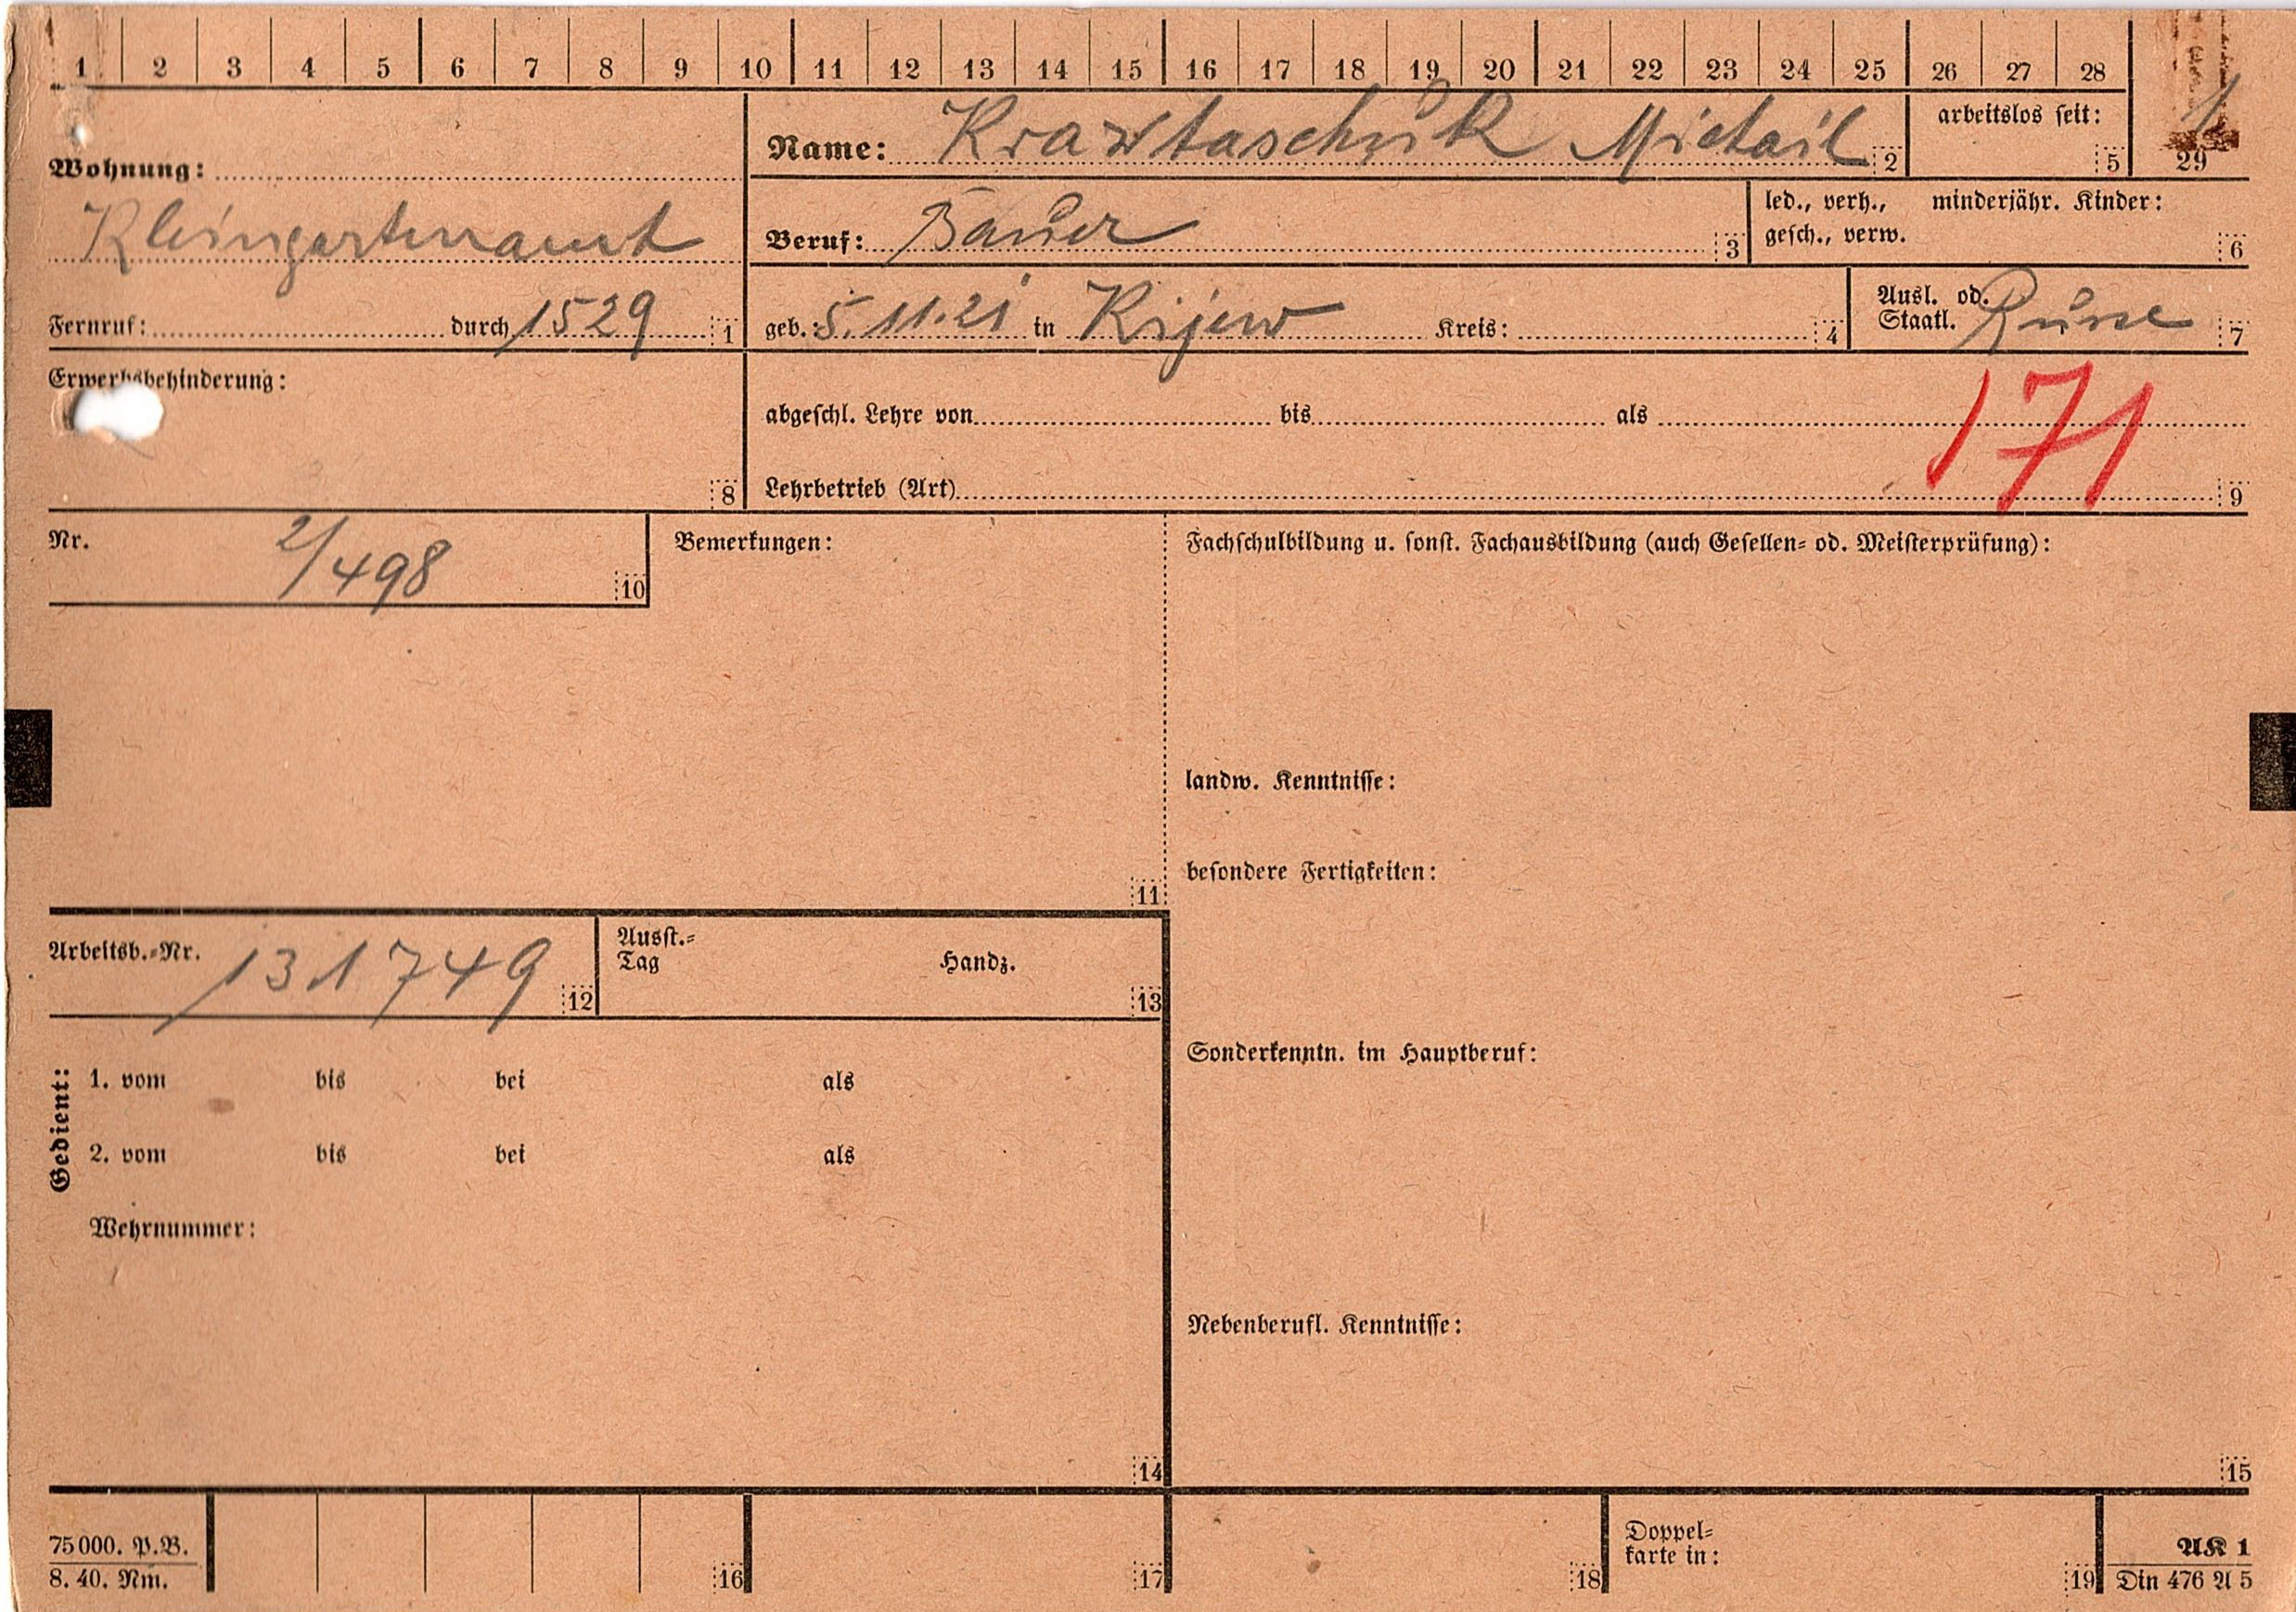 1 2 3 4 5 6 7 8 9 10 11 12 13 14 15 16 17 18 19 20 21 22 23 24 25 26 27 28 29
Wohnung:
Kleingartenamt
Fernruf: durch 1529 1
Name: Krawtaschuk Michail 2
arbeitslos seit: 5
Beruf: Bauer 3
led., verh., minderjähr. Kinder:
gesch., verw. 6
geb.: 5.11.21 in Kijew Kreis: 4
Ausl. od.
Staatl. Russe 7
Erwerbsbehinderung:
8
abgeschl. Lehre von bis als
171
Lehrbetrieb (Art) 9
Nr. 2/498 10
Bemerkungen:
11
Fachschulbildung u. sonst. Fachausbildung (auch Gesellen- od. Meisterprüfung):
landw. Kenntnisse:
besondere Fertigkeiten:
Arbeitsb.-Nr. 131749 12
Ausst.-
Tag Handz. 13
Gedient:
1. vom bis bei als
2. vom bis bei als
Wehrnummer:
14
Sonderkenntn. im Hauptberuf:
Nebenberufl. Kenntnisse:
15
75000. P.B.
8. 40. Nm.
16
17
18
Doppel-
karte in: 19
AK 1
Din 476 A 5